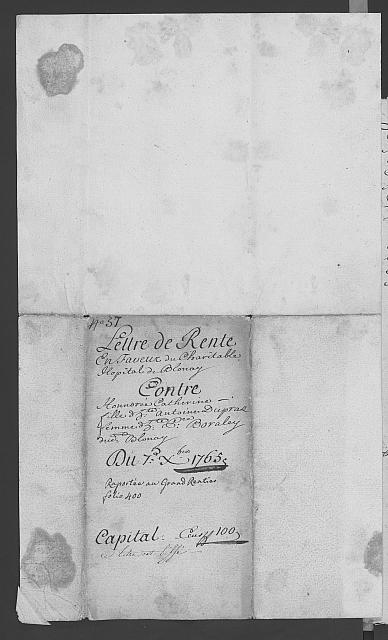 No 57
Lettre de Rente
En Faveur du Charitable
Hopital de Blonay
Contre
Honnorée Catherine
fille d'h. Antoine Dupraz
femme d'h.
Blonay
Du 7.e Xbre 1765
Raportée au Grand Rentier
folio 400
Capital: Ecus 100